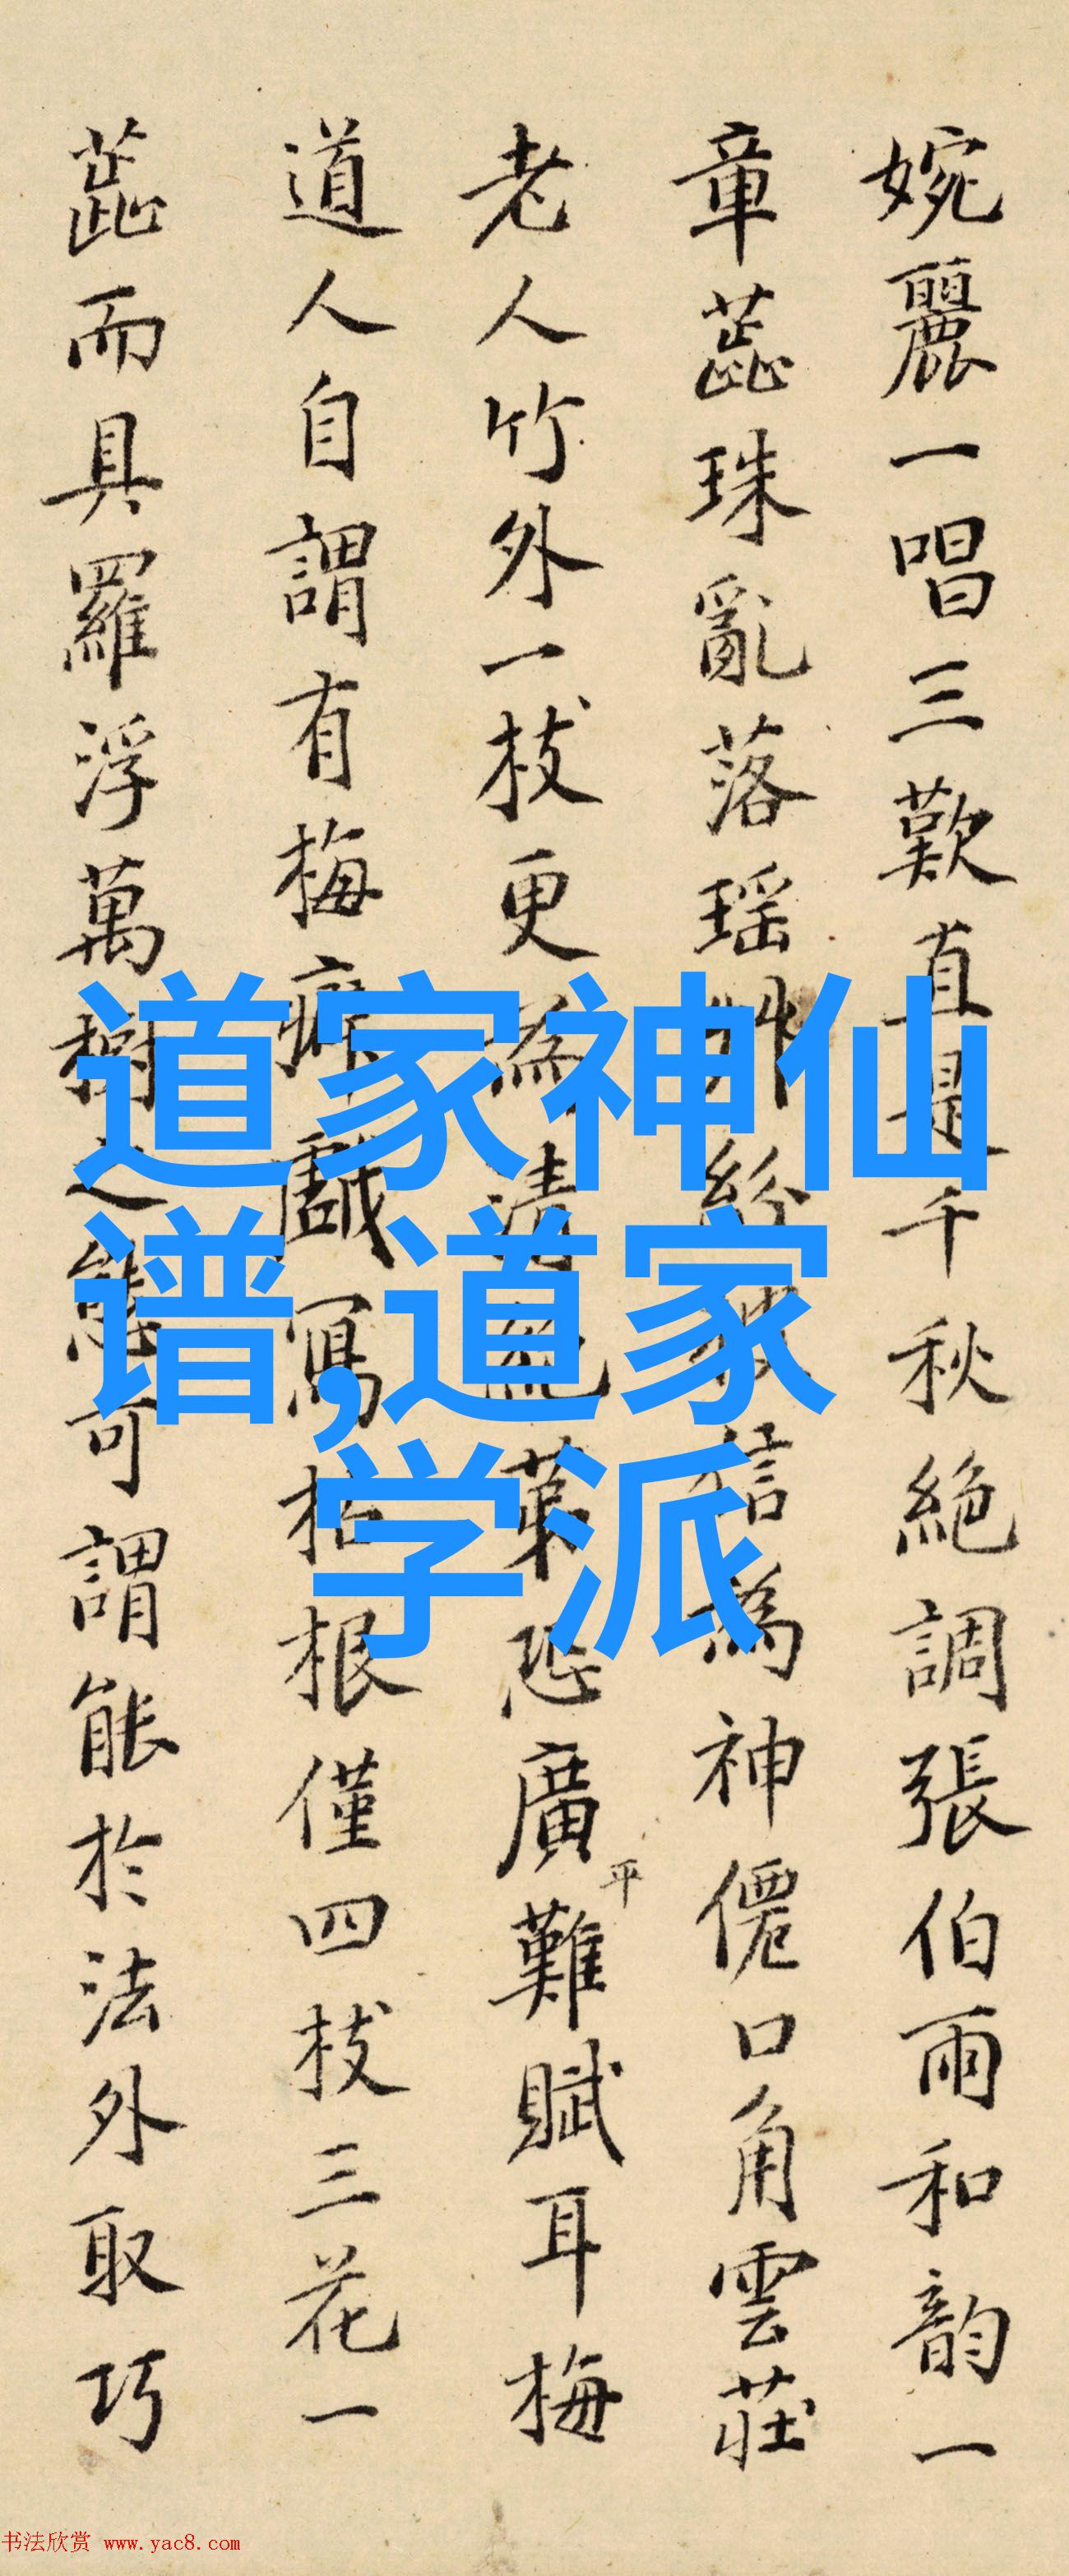 婉麗一唱三歎直是千秋絕調張伯雨和韵一
章蕋珠亂落瑶紛為神僊口角雲莊
老人竹外一枝更為清絕第恐廣平難賦耳梅
道人自謂有梅癖戲寫枯根僅四枝三花一
蕋而具羅浮萬樹之態可謂能於法外取巧
道家神仙
谱,道家
学派
书法欣赏 www.yac8.com